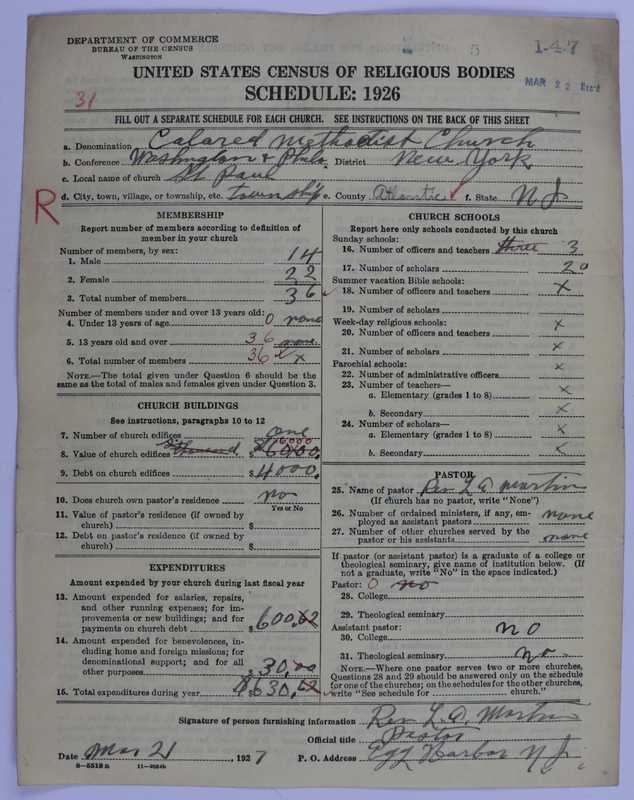 DEPARTMENT OF COMMERCE
BUREAU OF THE CENSUS
WASHINGTON
5
1-4-7
MAR 22 Rec'd
UNITED STATES CENSUS OF RELIGIOUS BODIES
SCHEDULE: 1926
31
FILL OUT A SEPARATE SCHEDULE FOR EACH CHURCH. SEE INSTRUCTIONS ON THE BACK OF THIS SHEET
a. Denomination Colared Methodist Church
b. Conference Washington & Phila. District New York
c. Local name of church St Paul
d. City, town, village, or township, etc. township e. County Atlantic f. State N. J.
R
MEMBERSHIP
Report number of members according to definition of member in your church
Number of members, by sex:
1. Male 14
2. Female 22
3. Total number of members 36
Number of members under and over 13 years old:
4. Under 13 years of age 0 none
5. 13 years old and over 36 none
6. Total number of members 36 x
NOTE.—The total given under Question 6 should be the same as the total of males and females given under Question 3.
CHURCH BUILDINGS
See instructions, paragraphs 10 to 12
7. Number of church edifices one
8. Value of church edifices $ 6000.
6,000
9. Debt on church edifices $ 4000.
10. Does church own pastor's residence no
Yes or No
11. Value of pastor's residence (if owned by church) $
12. Debt on pastor's residence (if owned by church) $
EXPENDITURES
Amount expended by your church during last fiscal year
13. Amount expended for salaries, repairs, and other running expenses; for improvements or new buildings; and for payments on church debt $ 600.62
14. Amount expended for benevolences, including home and foreign missions; for denominational support; and for all other purposes 30.00
15. Total expenditures during year $ 630.62
CHURCH SCHOOLS
Report here only schools conducted by this church
Sunday schools:
16. Number of officers and teachers three 3
17. Number of scholars 20
Summer vacation Bible schools:
18. Number of officers and teachers x
19. Number of scholars x
Week-day religious schools:
20. Number of officers and teachers x
21. Number of scholars x
Parochial schools:
22. Number of administrative officers x
23. Number of teachers—
a. Elementary (grades 1 to 8) x
b. Secondary x
24. Number of scholars—
a. Elementary (grades 1 to 8) x
b. Secondary x
PASTOR
25. Name of pastor Rev L. A. Martin
(If church has no pastor, write "None")
26. Number of ordained ministers, if any, employed as assistant pastors none
27. Number of other churches served by the pastor or his assistants none
If pastor (or assistant pastor) is a graduate of a college or theological seminary, give name of institution below. (If not a graduate, write "No" in the space indicated.)
Pastor: 0 no
28. College
29. Theological seminary
Assistant pastor:
30. College no
31. Theological seminary no
NOTE.—Where one pastor serves two or more churches, Questions 28 and 29 should be answered only on the schedule for one of the churches; on the schedules for the other churches, write "See schedule for church."
Signature of person furnishing information Rev. L. A. Martin
Official title Pastor
Date Mar 21, 1927 P. O. Address Egg Harbor N. J.
8—5518 a 11—9064b